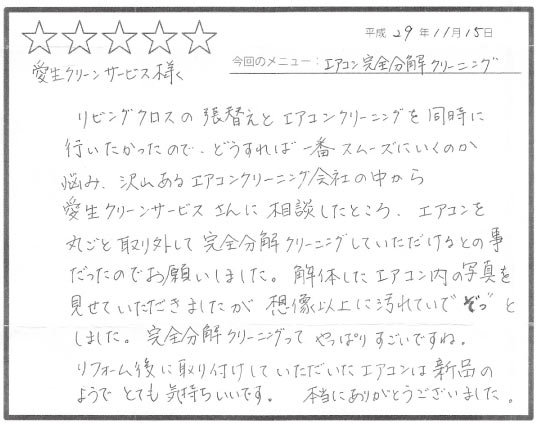 平成 29 年 11 月 15 日
今回のメニュー：エアコン完全分解クリーニング
愛生クリーンサービス様へ
リビングクロスの張替えとエアコンクリーニングを同時に
行いたかったので、どうすれば一番スムーズにいくのか
悩み、沢山あるエアコンクリーニング会社の中から
愛生クリーンサービスさんに相談したところ、エアコンを
丸ごと取り外して完全分解クリーニングしていただけるとの事
だったのでお願いしました。解体したエアコン内の写真を
見せていただきましたが想像以上に汚れていて"ぞっ"と
しました。完全分解クリーニングってやっぱりすごいですね。
リフォーム後に取り付けしていただいたエアコンは新品の
ようでとても気持ちいいです。本当にありがとうございました。